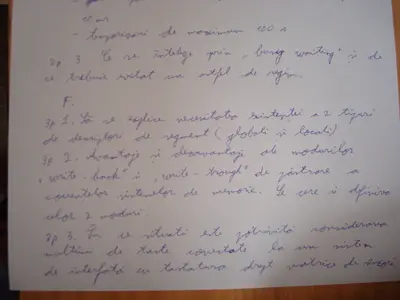 10 ms
- temporizări de maximum 100 s
2p 3 Ce se înțelege prin „busy waiting" și de
ce trebuie evitat un astfel de regim.
F.
3p 1. Să se explice necesitatea existenței a 2 tipuri
de descriptori de segment (globali și locali)
3p 2. Avantaje și dezavantaje ale modurilor
„write-back" și „write-trough" de păstrare a
coerentelor sistemelor de memorie. Se cere și definirea
celor 2 moduri.
2p 3. În ce situații este potrivită considerarea
mulțimii de taste conectate la un sistem
de interfață cu tastatura drept matrice de